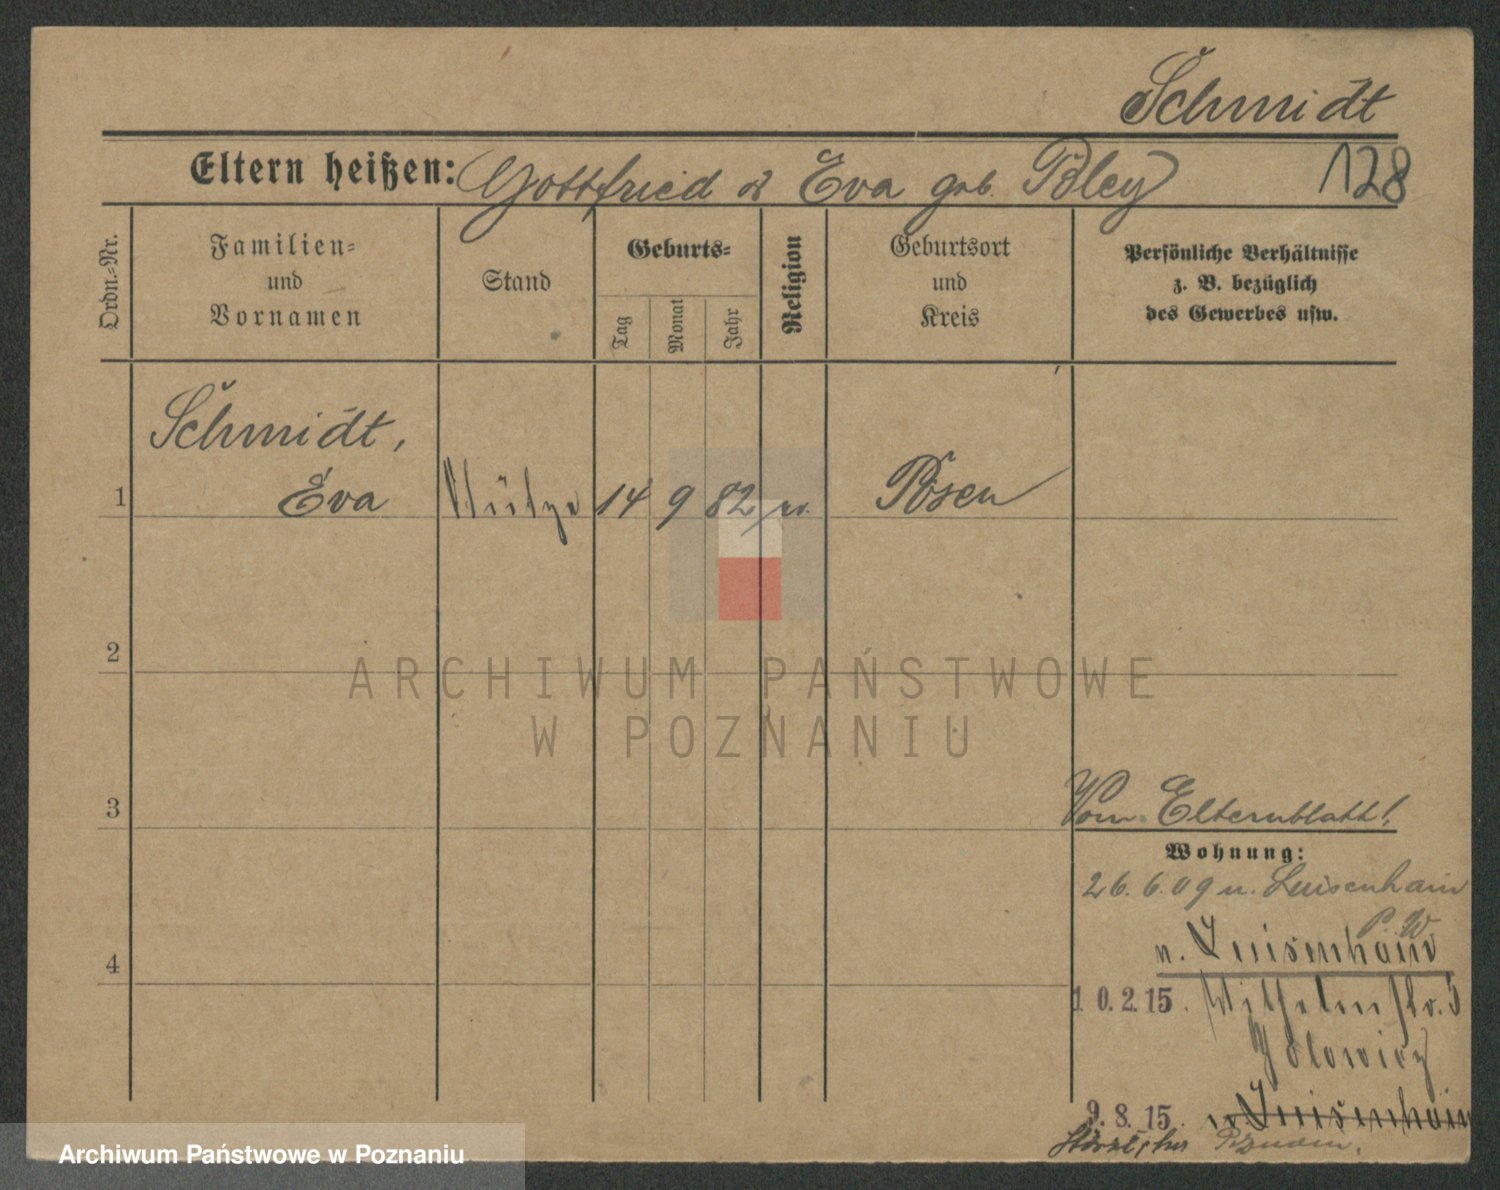 Schmidt
Eltern heißen: Gottfried & Eva geb. Bley 128
Ordn.=Nr.
Familien=
und
Vornamen
Stand
Geburts=
Tag
Monat
Jahr
Religion
Geburtsort
und
Kreis
Persönliche Verhältnisse
z. B. bezüglich
des Gewerbes usw.
Schmidt,
1 Eva Stütze 14 9 82 ev. Posen
2
ARCHIWUM PAŃSTWOWE
W POZNANIU
Vom Elternblatt!
3
Wohnung:
26. 6. 09 n. Luisenhain
P. W.
n. Luisenhain
4
10.2.15. Wilhelmstr. 5
9.8.15. n Luisenhain
Archiwum Państwowe w Poznaniu